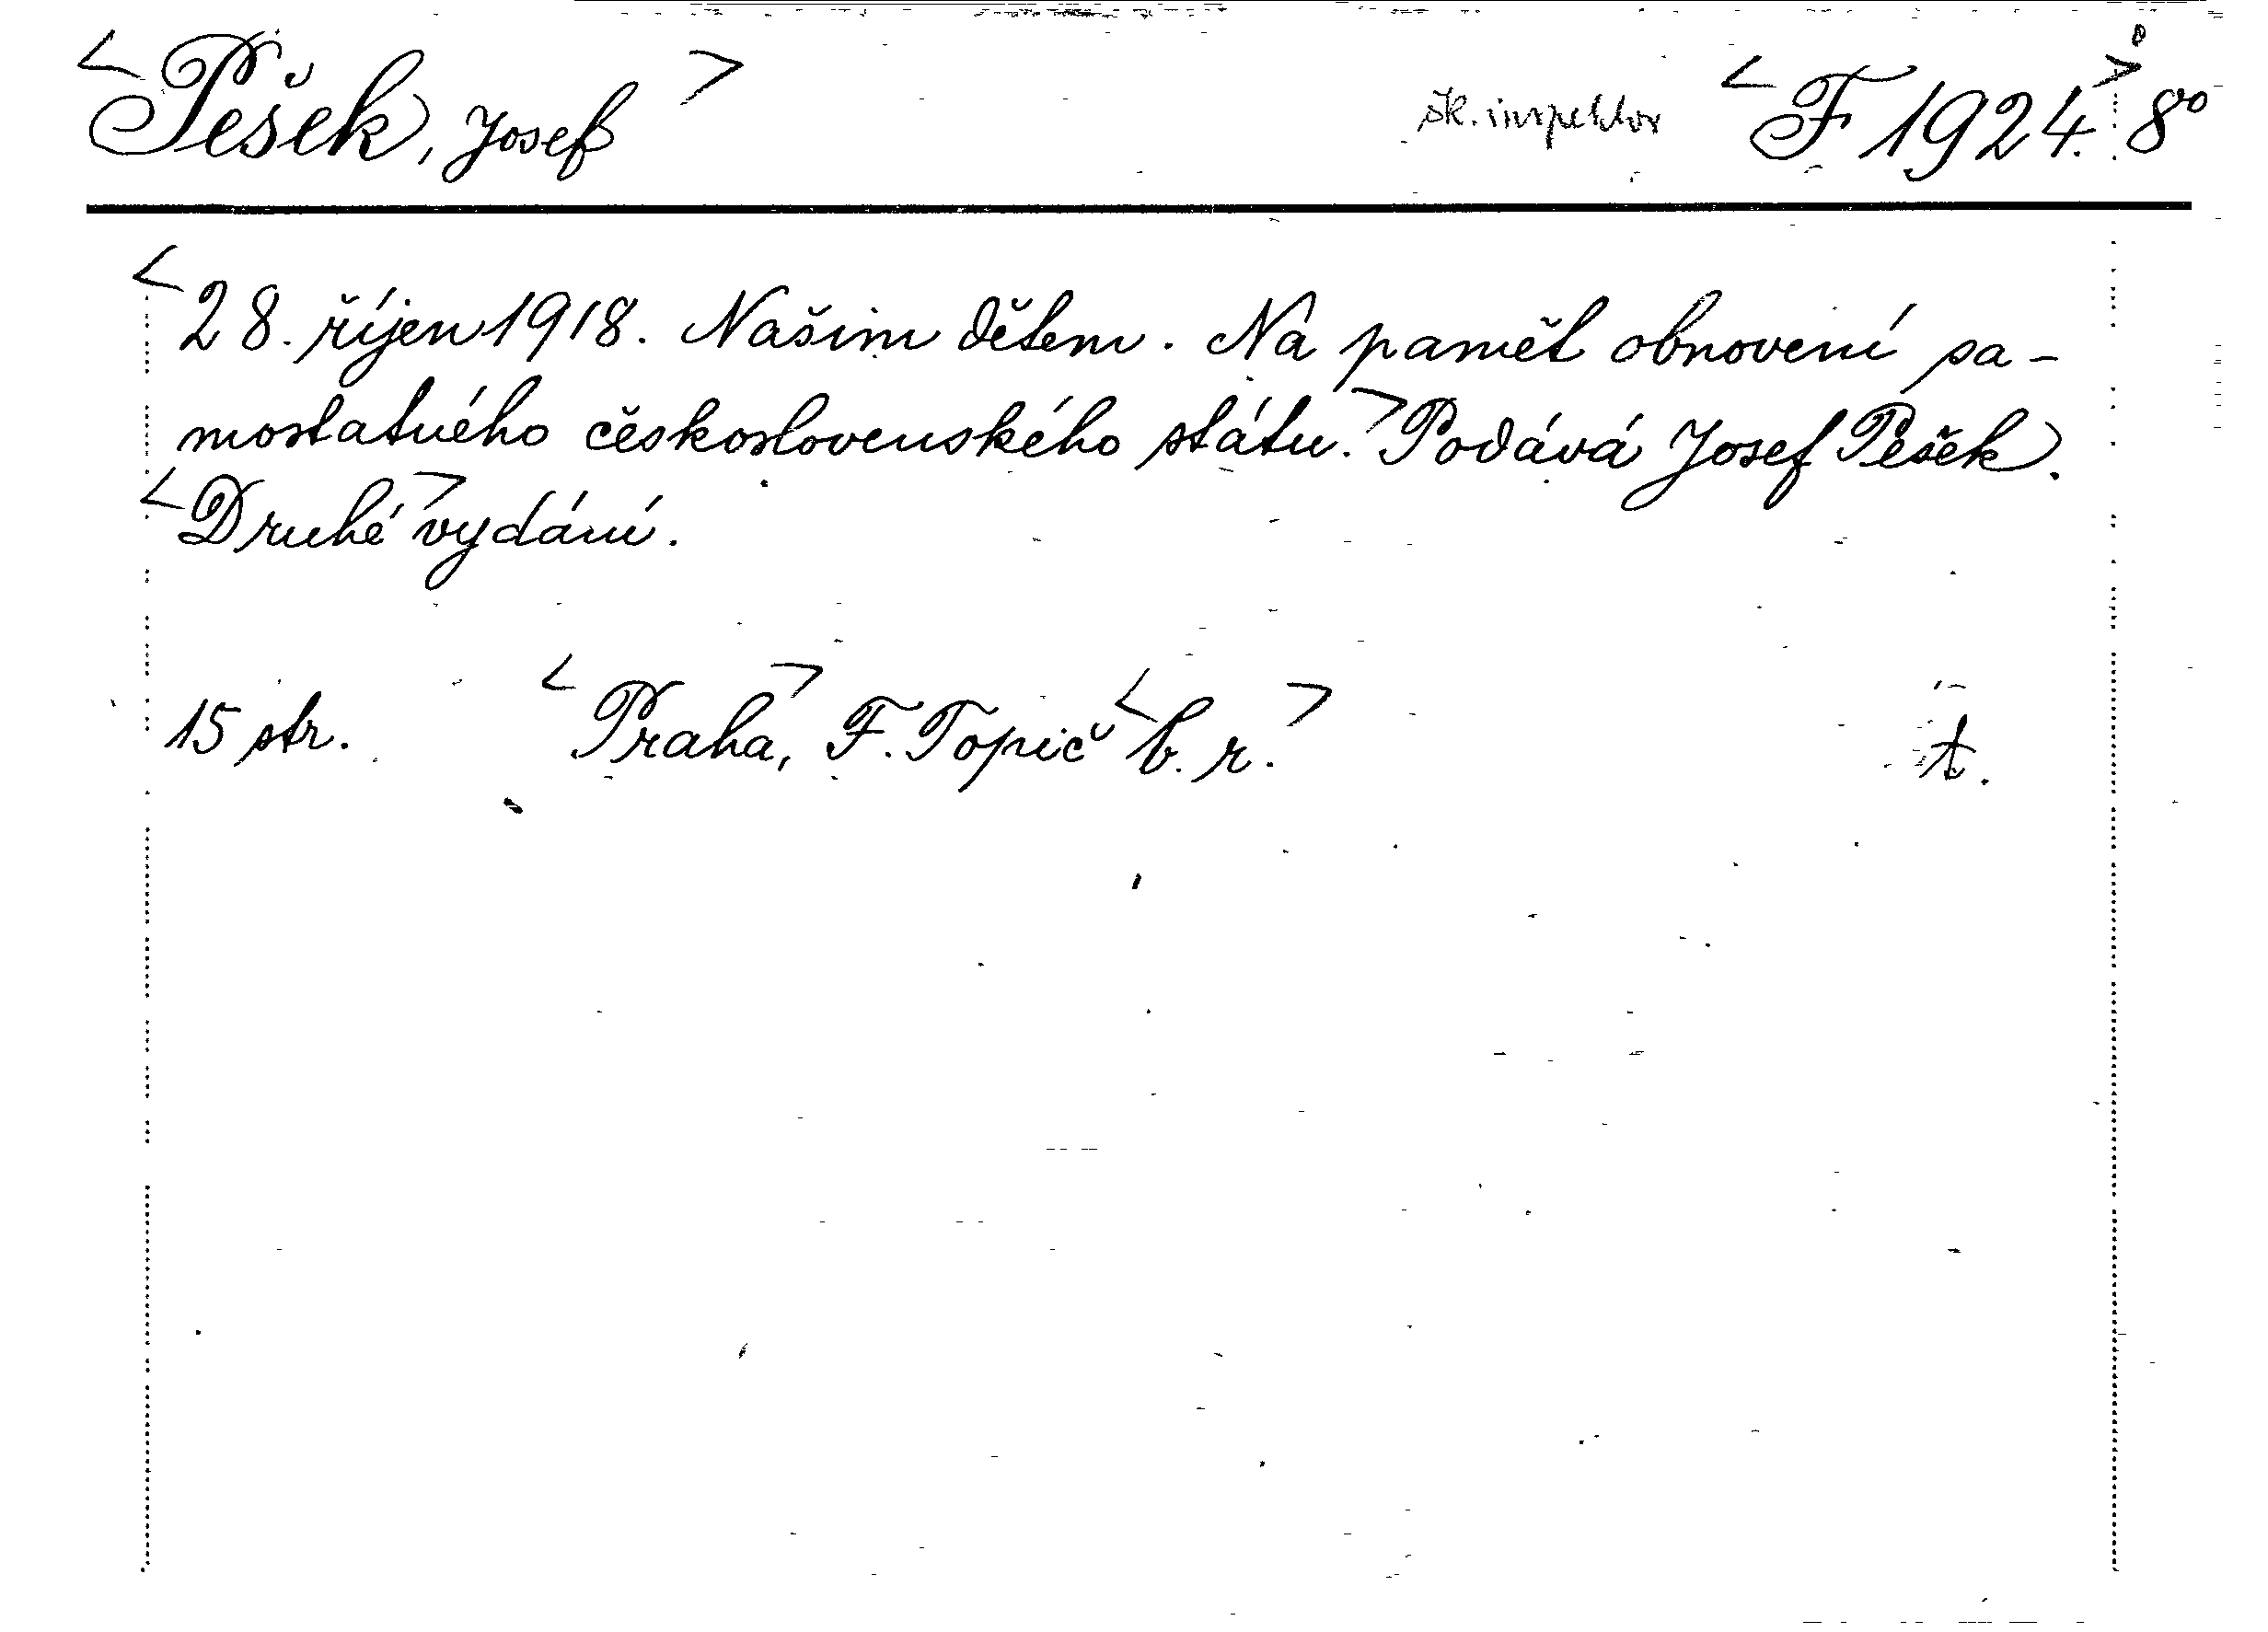 <Pešek, Josef> šk. inspektor <F 1924.> 8°
<28. říjen 1918. Našim dětem. Na paměť obnovení sa-
mostatného československého státu.> Podává Josef Pešek.
<Druhé> vydání.
15 str. <Praha>, F. Topič <b. r.> t.